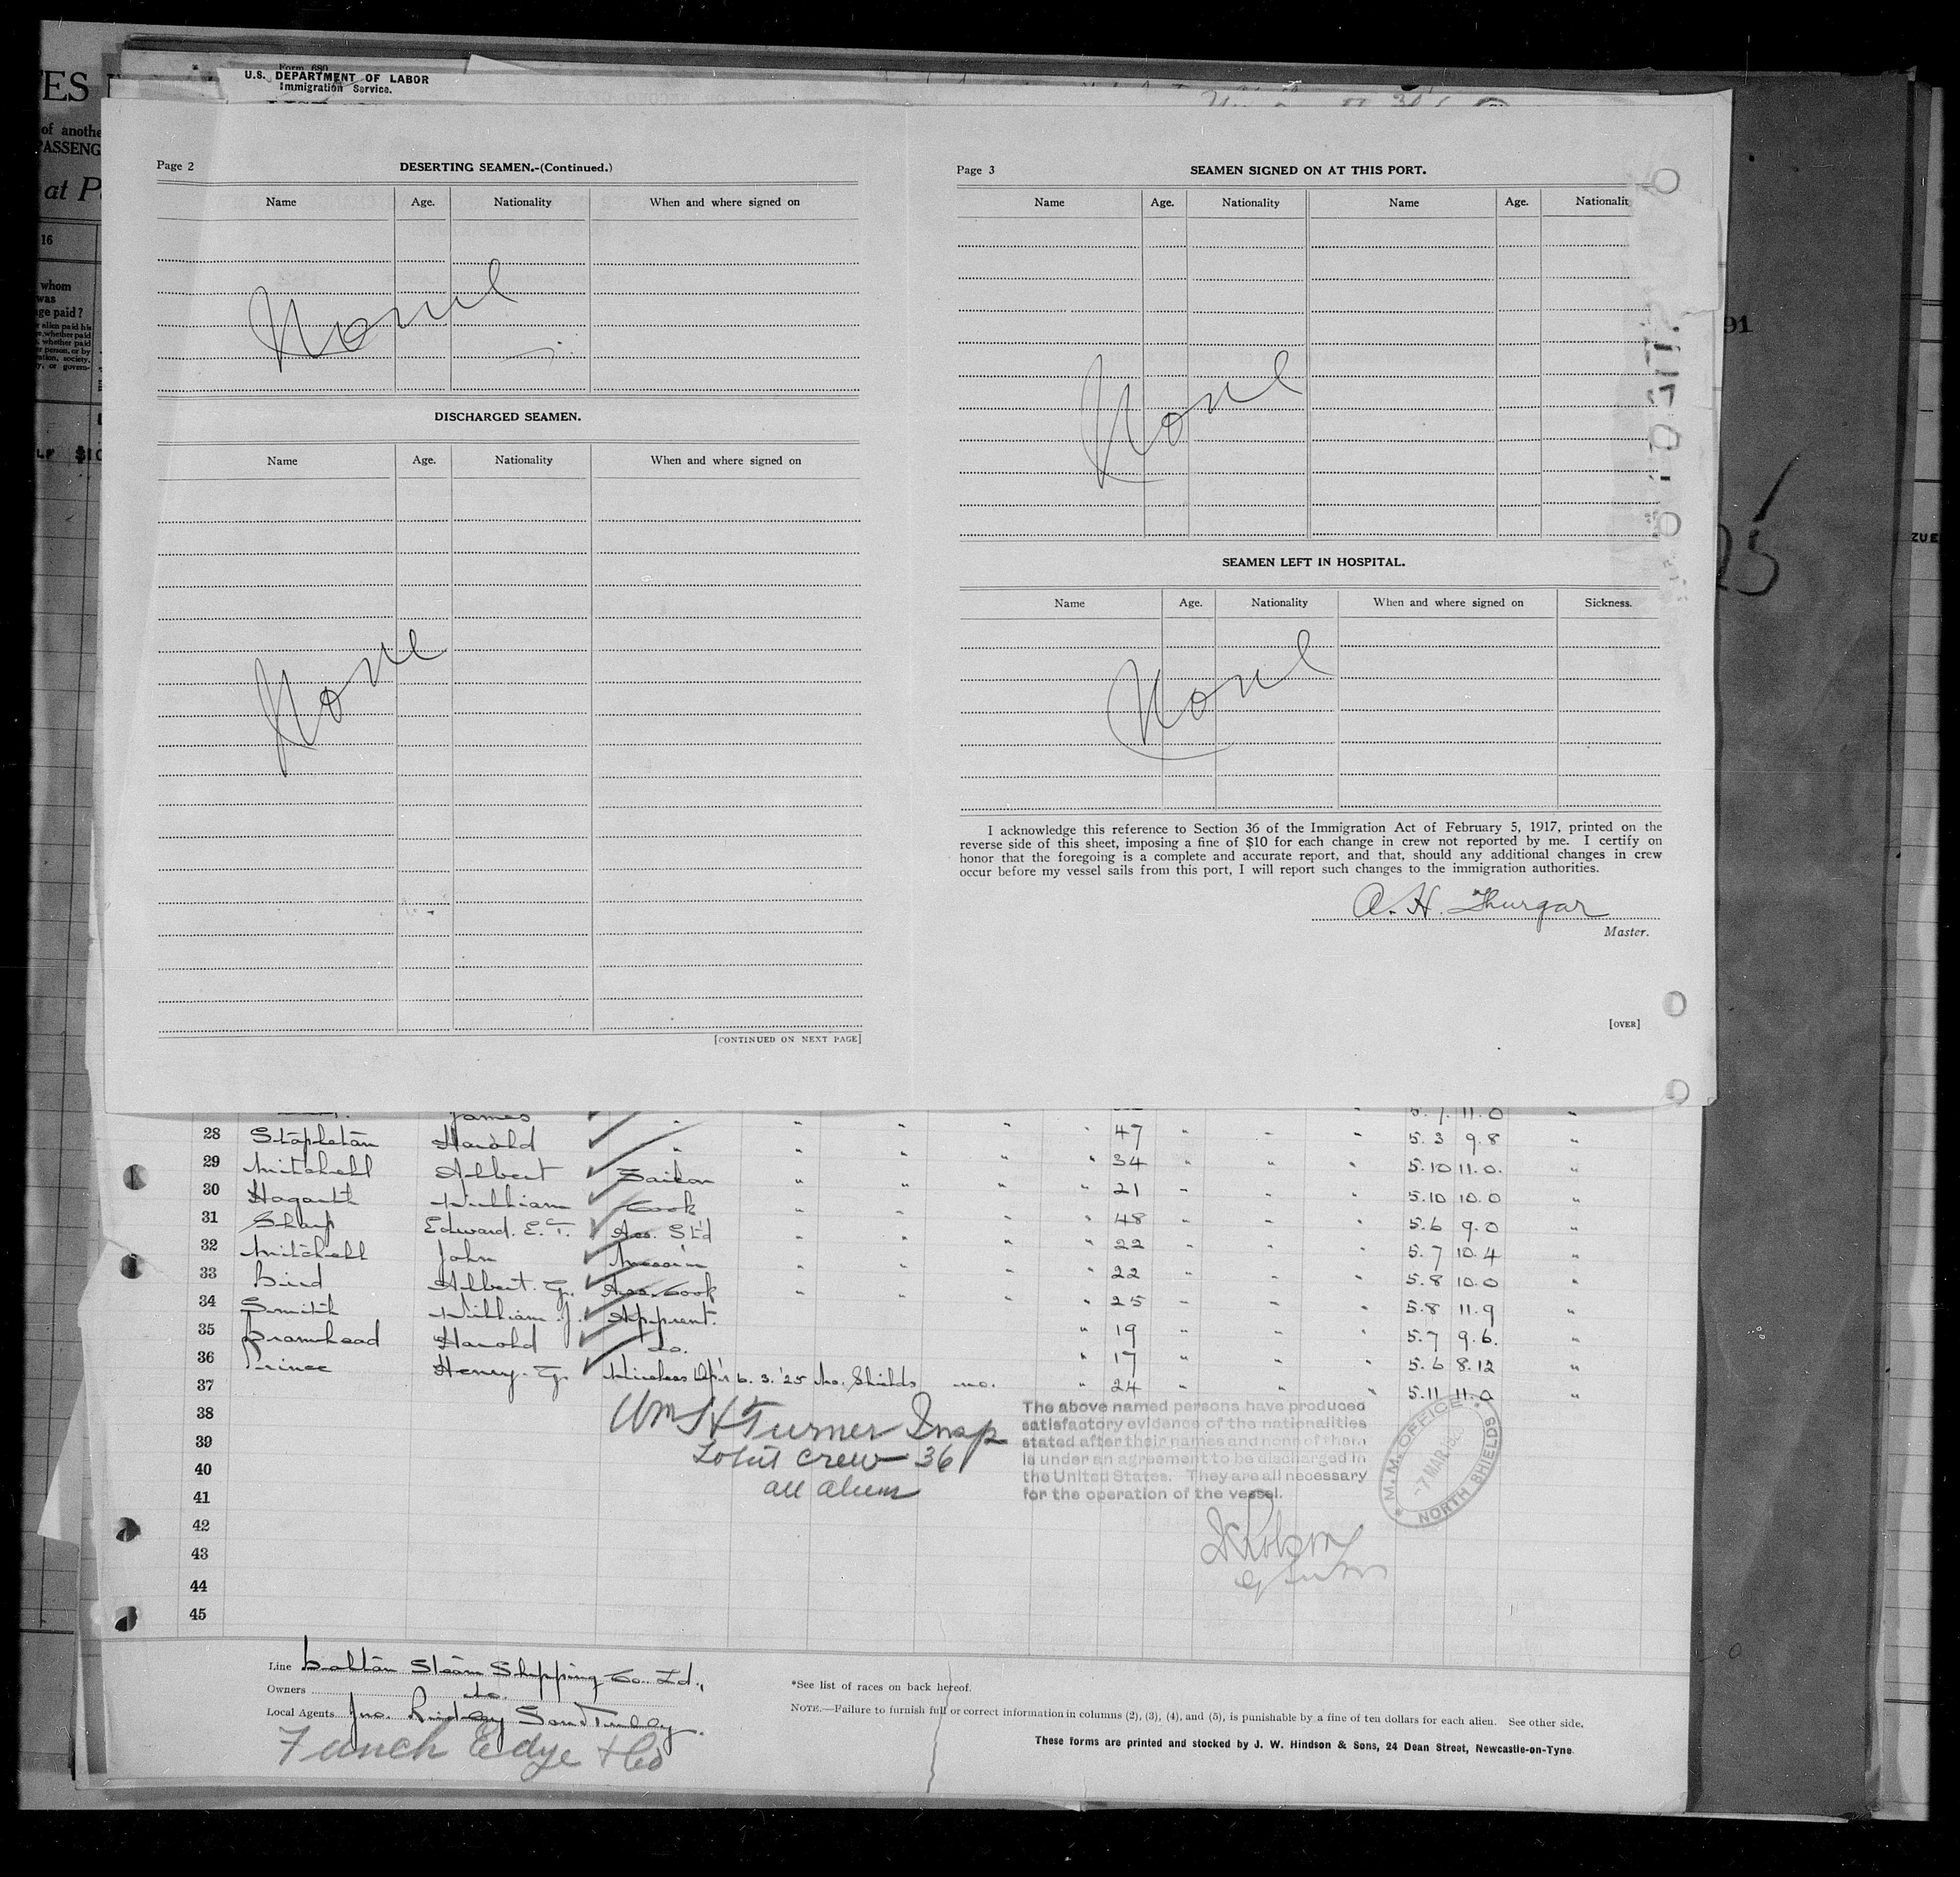 TES
of anothe
PASSENG
at P
16
whom
was
ge paid?
Form 680
U.S. DEPARTMENT OF LABOR
Immigration Service.
Page 2
DESERTING SEAMEN.-(Continued.)
Name Age. Nationality When and where signed on
None
DISCHARGED SEAMEN.
Name Age. Nationality When and where signed on
None
[CONTINUED ON NEXT PAGE]
Page 3
SEAMEN SIGNED ON AT THIS PORT.
Name Age. Nationality Name Age. Nationalit
None
SEAMEN LEFT IN HOSPITAL.
Name Age. Nationality When and where signed on Sickness.
None
I acknowledge this reference to Section 36 of the Immigration Act of February 5, 1917, printed on the
reverse side of this sheet, imposing a fine of $10 for each change in crew not reported by me. I certify on
honor that the foregoing is a complete and accurate report, and that, should any additional changes in crew
occur before my vessel sails from this port, I will report such changes to the immigration authorities.
A. H. Thurgar
Master.
[OVER]
91
25
ZUE
James 5. 7. 11.0 "
28 Stapleton Harold " " " " " " 47 " " " 5.3 9.8 "
29 Mitchell Albert " " " " " 34 " " " 5.10 11.0. "
30 Hogarth William Sailor " " " " 21 " " " 5.10 10.0 "
31 Sharp Edward. E. T. Cook " " " " 48 " " " 5.6 9.0 "
32 Mitchell John Ass. St'd " " " " 22 " " " 5.7 10.4 "
33 Bird Albert. G. Messm " " " " 22 " " " 5.8 10.0 "
34 Smith William. J. Ass. Cook " " " " 25 " " " 5.8 11.9 "
35 Bramhead Harold Apprent. " 19 " " " 5.7 9.6. "
36 Prince Henry. G. do. " 17 " " " 5.6 8.12 "
37 Wireless Op'r 6. 3. '25 No. Shields no. " 24 " " " 5.11 11.0 "
38
39
40
41
42
43
44
45
Wm H Turner Insp
Total crew - 36
all aliens
The above named persons have produced
satisfactory evidence of the nationalities
stated after their names and none of them
is under an agreement to be discharged in
the United States. They are all necessary
for the operation of the vessel.
M. M. OFFICE
-7 MAR 1925
NORTH SHIELDS
Line Bolton Steam Shipping Co. Ld.,
Owners do.
Local Agents Jno.
Funch Edye & Co
*See list of races on back hereof.
NOTE.—Failure to furnish full or correct information in columns (2), (3), (4), and (5), is punishable by a fine of ten dollars for each alien. See other side.
These forms are printed and stocked by J. W. Hindson & Sons, 24 Dean Street, Newcastle-on-Tyne